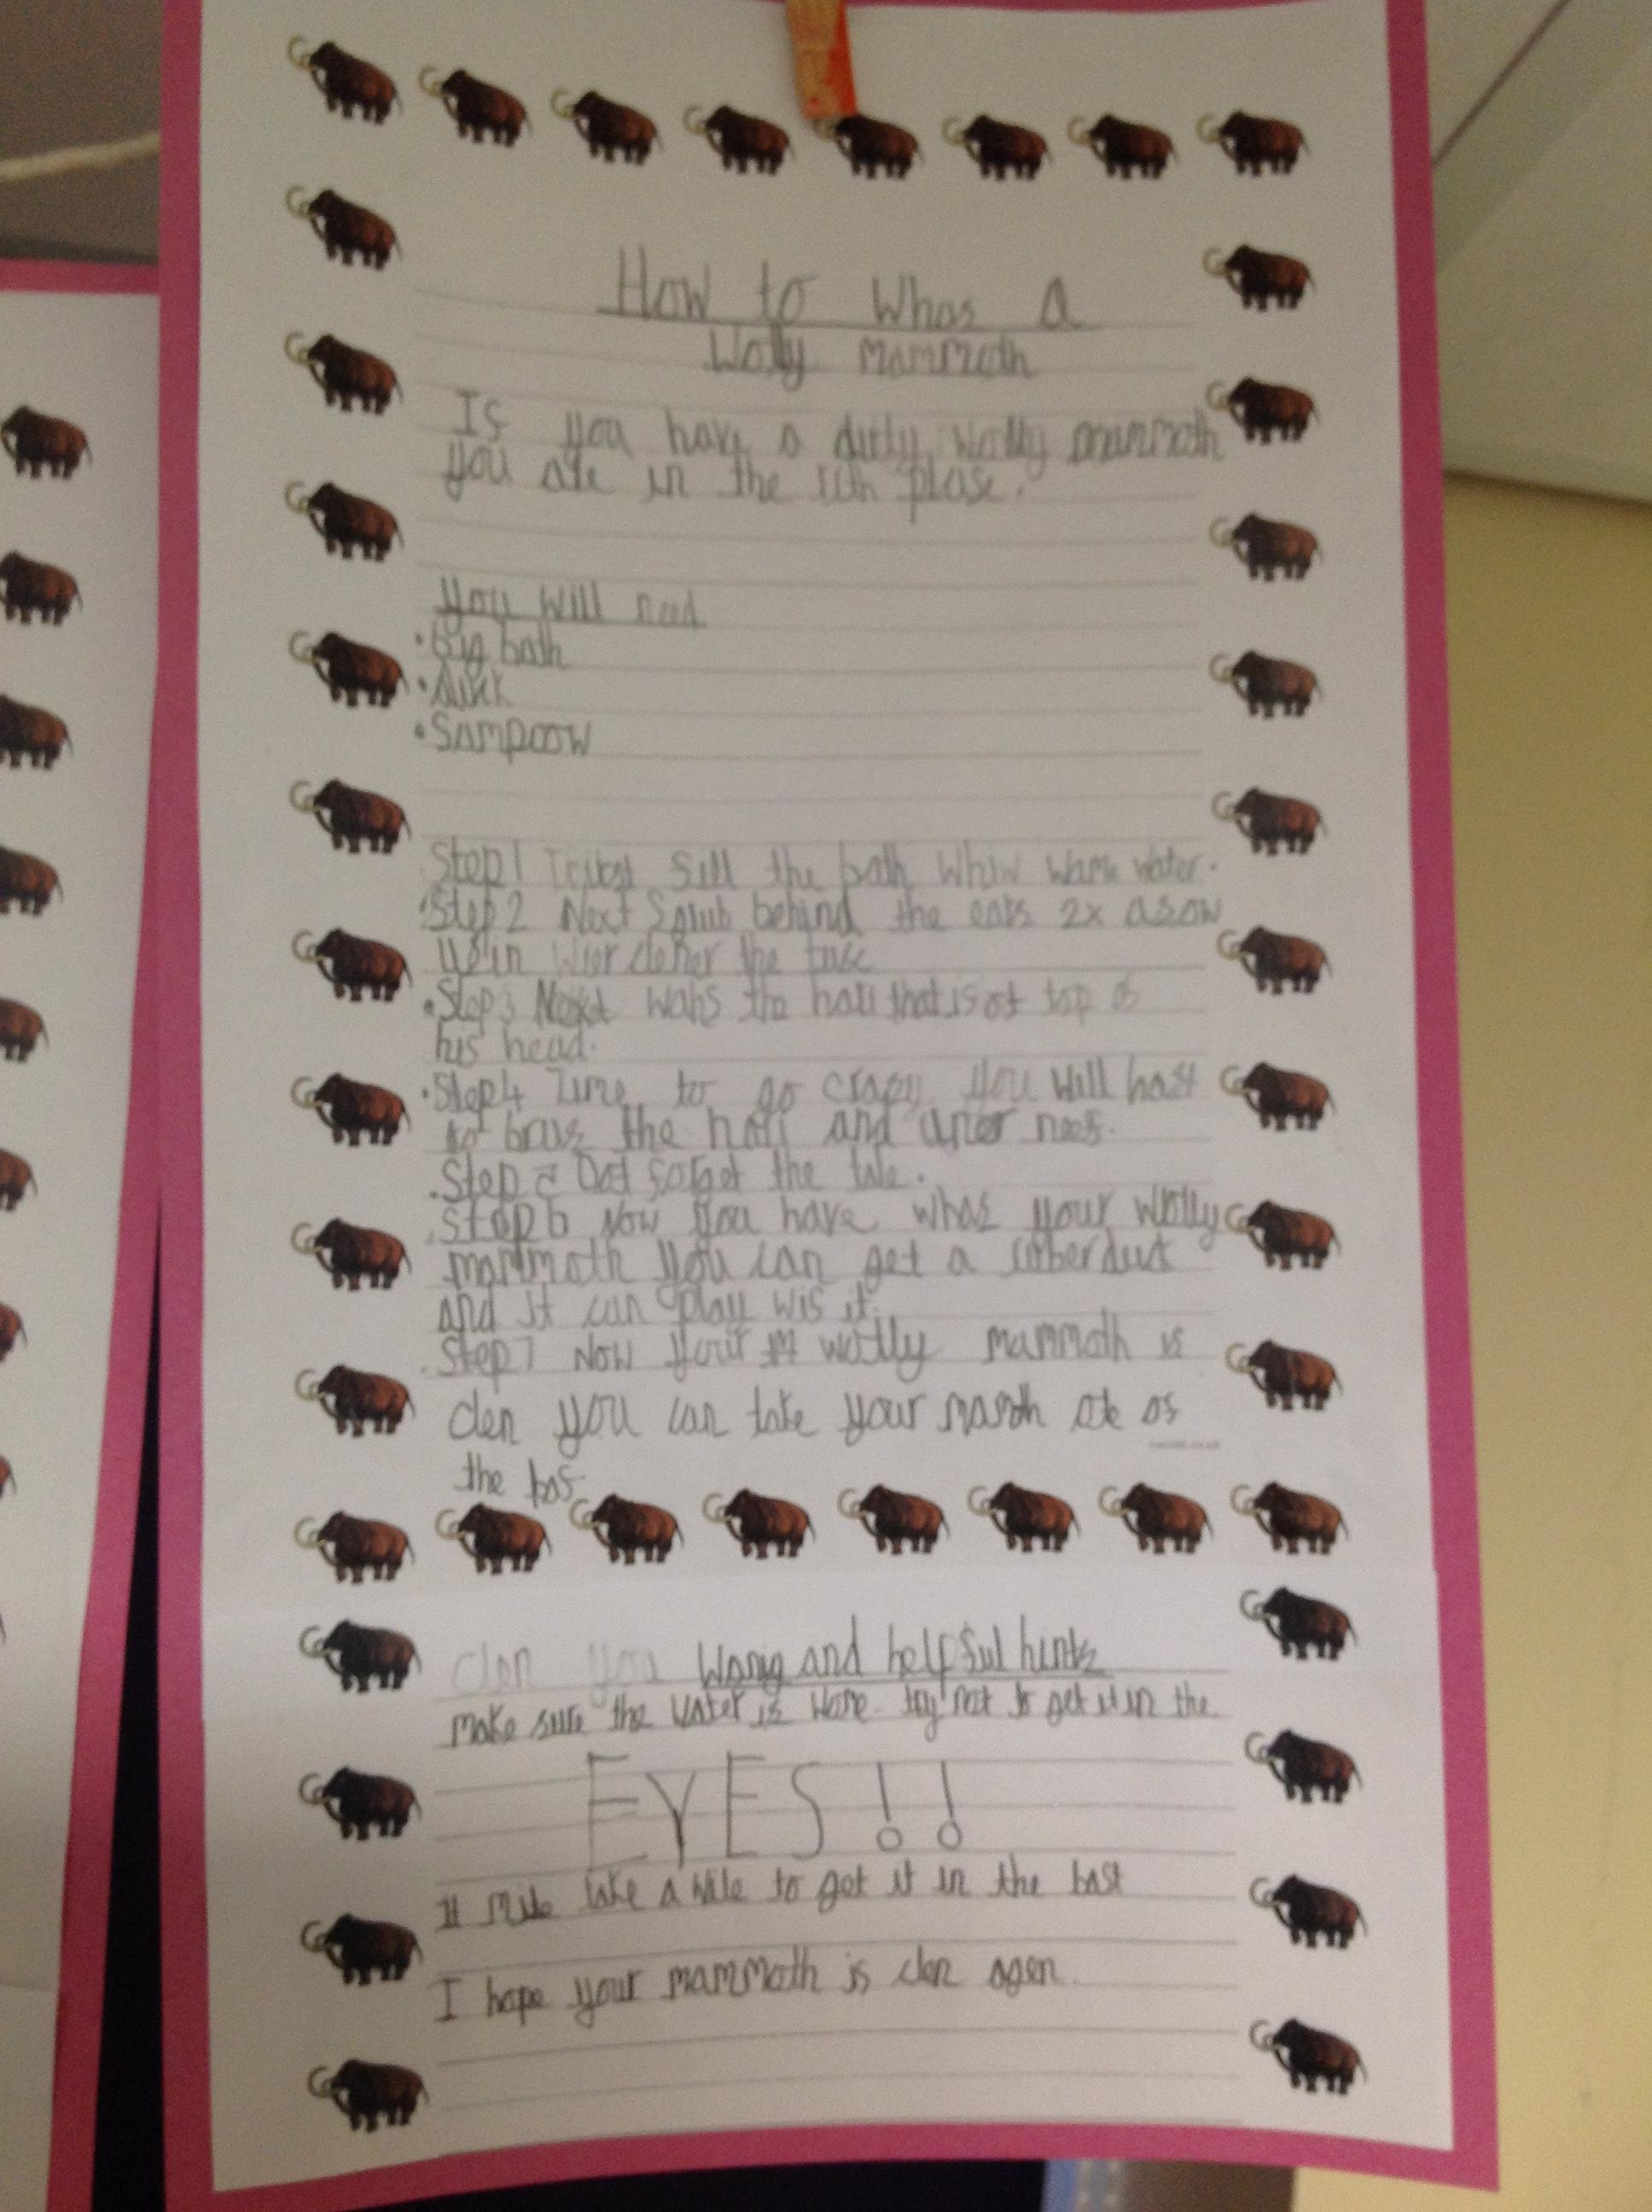 How to Whas a
Wolly mammoth
If you have a dirty Wolly mammoth
you are in the plase.
you will need
• big bath
• duck
• Sampoow
Step 1 fill the bath Whiw warm water.
• Step 2 Next Scrub behind the ears 2x
the
• Step 3 Next wahs the hair that is ot top of
his head.
• Step 4 Time to go crazy you will haft
to brus the hair and
. Step 5 Dot forget the tale.
. Step 6 Now you have whas your Wolly
mammoth you can get a
and it can play wis it.
. Step 7 Now your wolly mammoth is
clen you can take your of
the
clen you Wonig and helpful hints
make sure the water is try not to get it in the
EYES!!
It take a wile to get it in the
I hope your mammoth is clen agen.